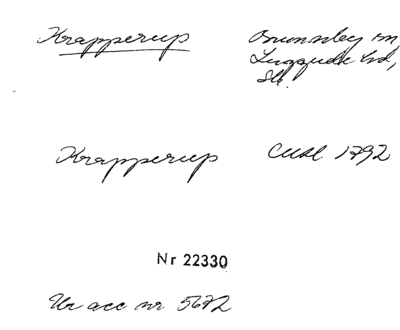 Krapperup Brunnby sn
Luggude hd,
Sk.
Krapperup CUSL 1792
Nr 22330
Ur acc nr 5672